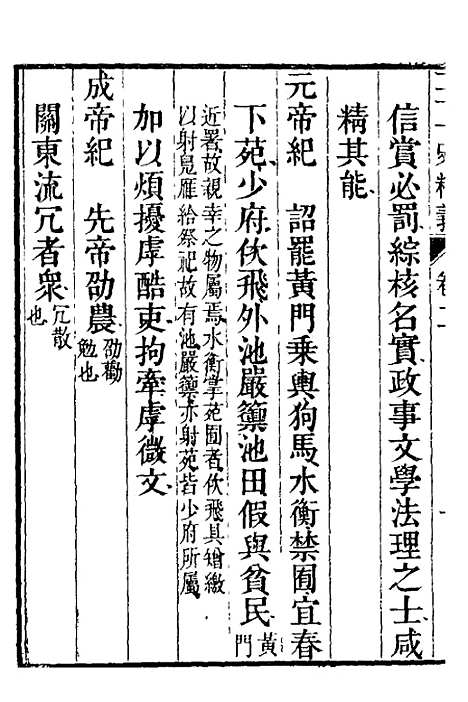 信賞必罰綜核名實政事文學法理之士咸
精其能
元帝紀　詔罷黃門乗輿狗馬水衡禁囿宜春
下苑少府佽飛外池嚴籞池田假與貧民黃門
近署故親幸之物屬焉水衡掌苑囿者佽飛具矰繳
以射鳧雁給祭祀故有池嚴籞亦射苑皆少府所屬
加以煩擾虖酷吏拘牽虖微文
成帝紀　先帝劭農劭勸勉也
關東流冗者衆冗散也